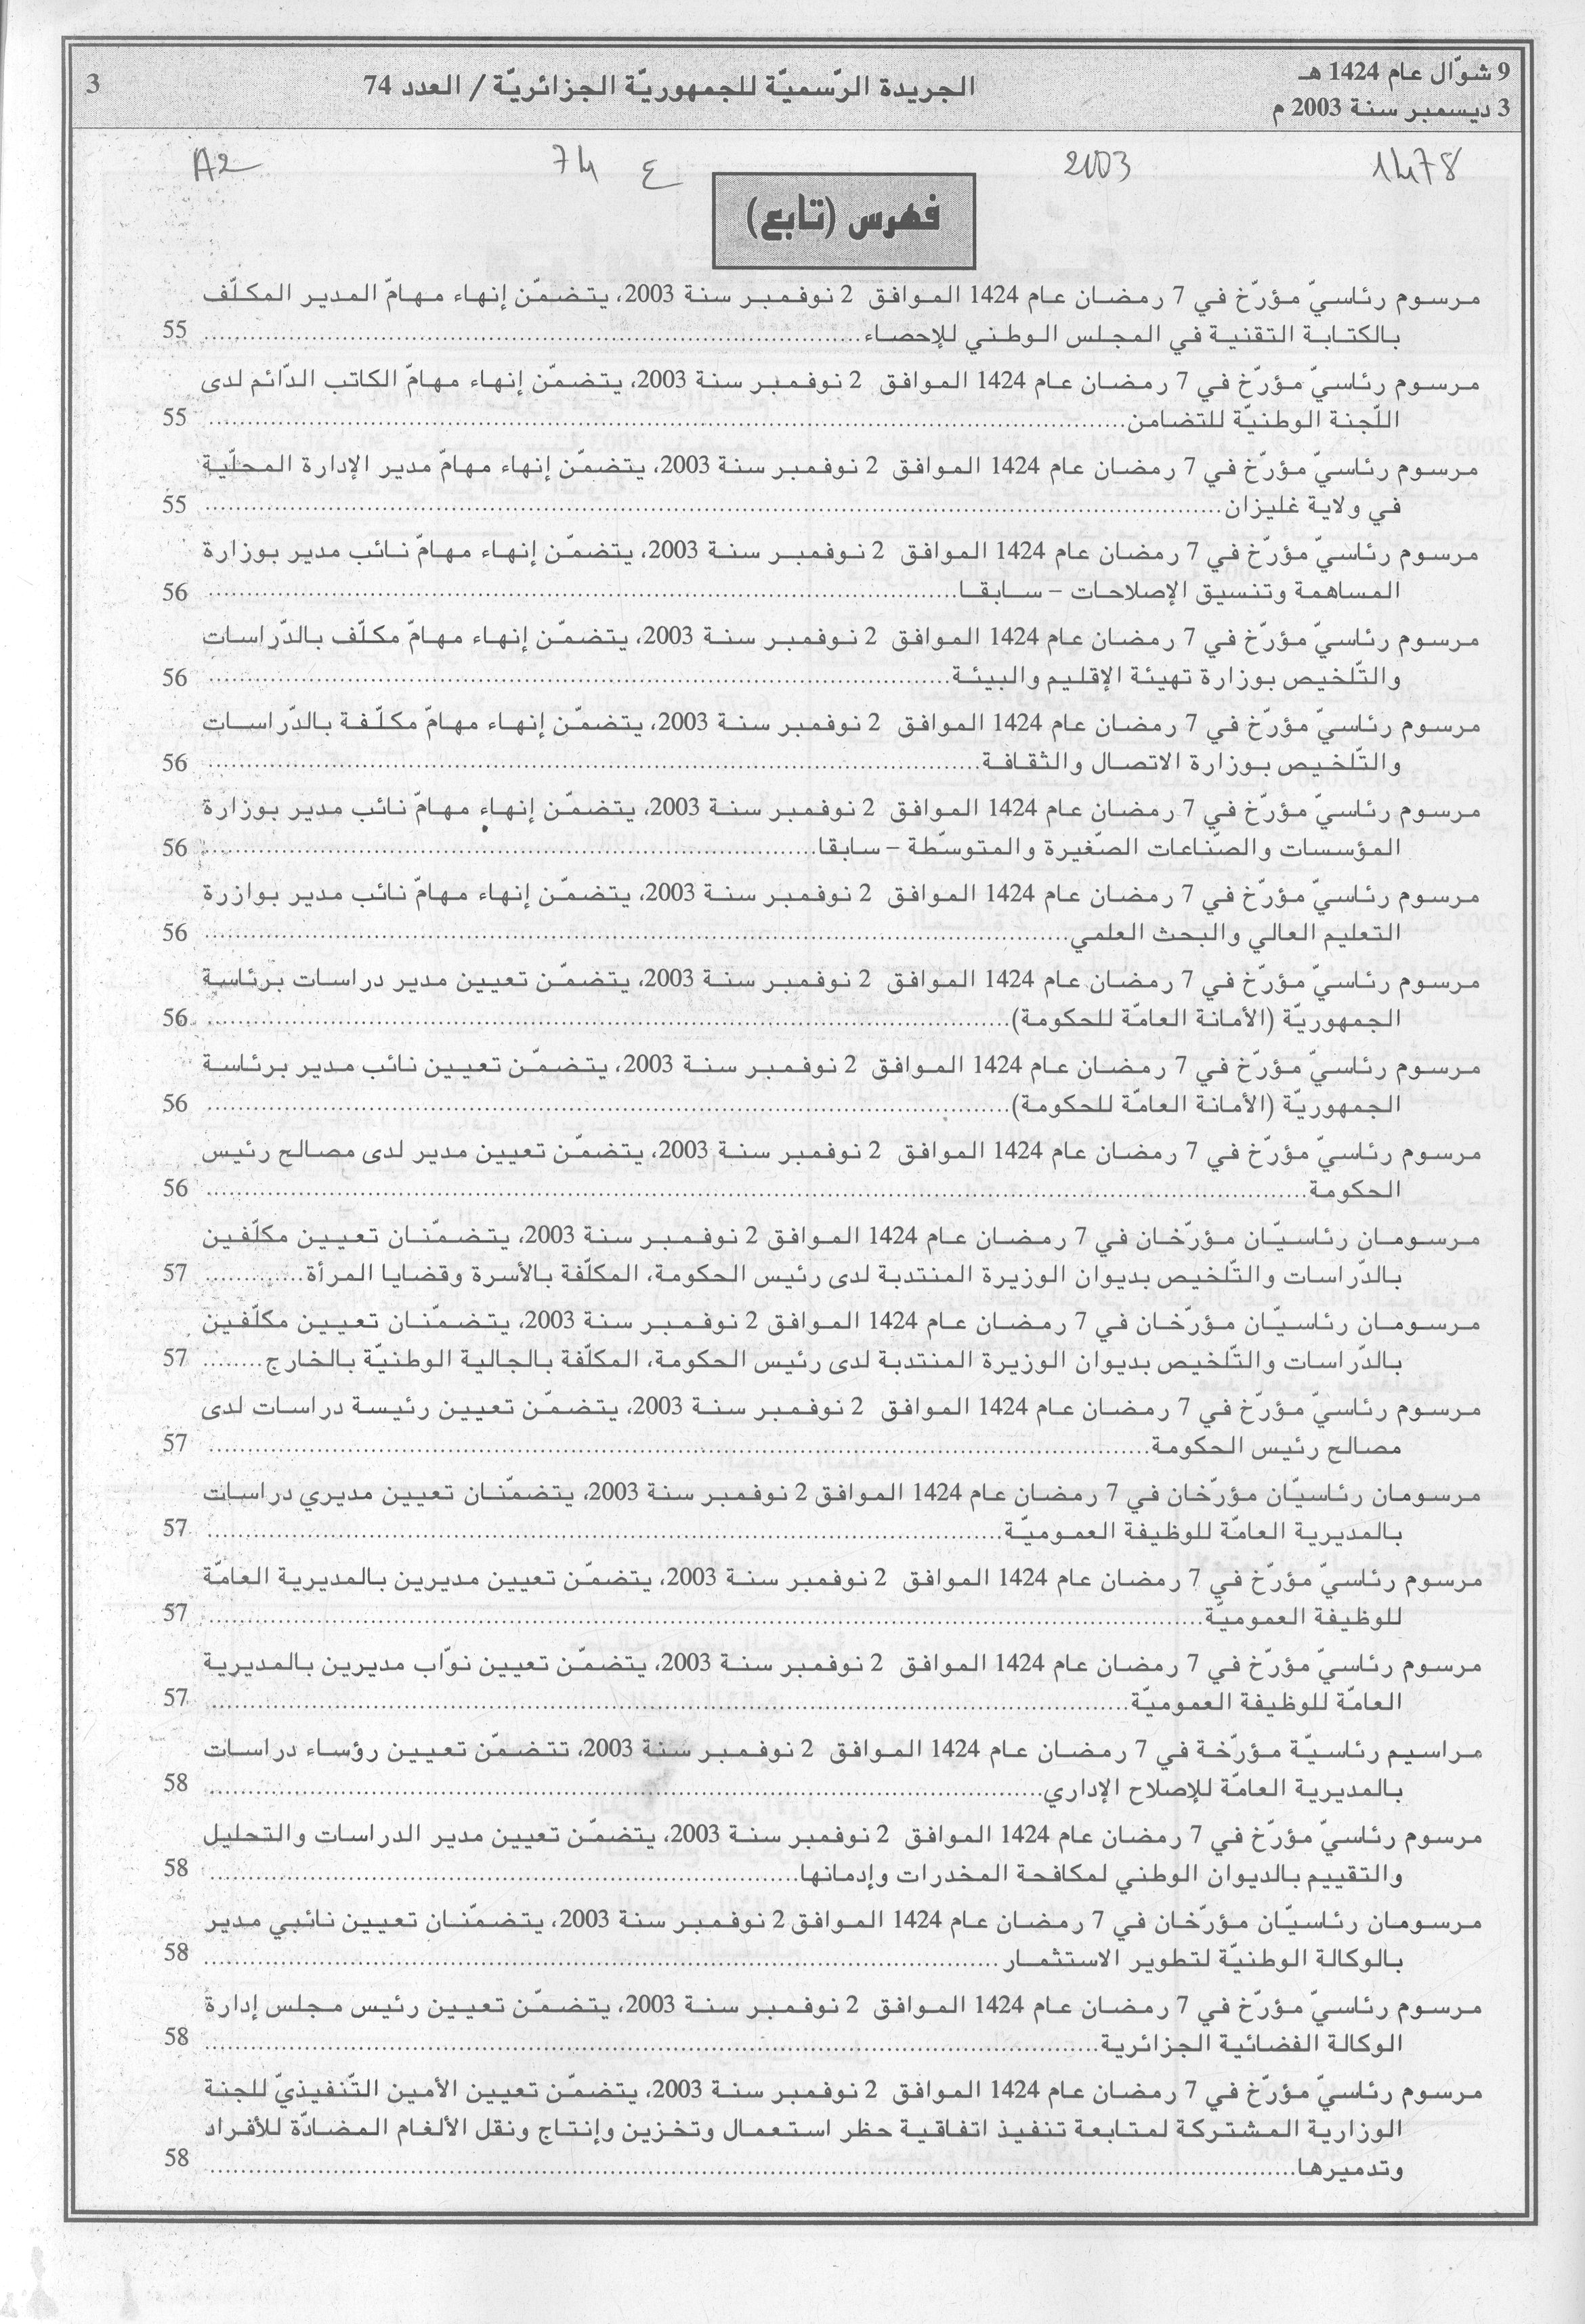 9 شوّال عام 1424 هـ
3 ديسمبر سنة 2003 م
الجريدة الرّسميّة للجمهوريّة الجزائريّة / العدد 74
3
1478 2003 ع 74 A2
فهرس (تابع)
مرسوم رئاسيّ مؤرّخ في 7 رمضان عام 1424 الموافق 2 نوفمبر سنة 2003، يتضمّن إنهاء مهامّ المدير المكلّف
بالكتابة التقنية في المجلس الوطني للإحصاء 55
مرسوم رئاسيّ مؤرّخ في 7 رمضان عام 1424 الموافق 2 نوفمبر سنة 2003، يتضمّن إنهاء مهامّ الكاتب الدّائم لدى
اللّجنة الوطنيّة للتضامن 55
مرسوم رئاسيّ مؤرّخ في 7 رمضان عام 1424 الموافق 2 نوفمبر سنة 2003، يتضمّن إنهاء مهامّ مدير الإدارة المحلّية
في ولاية غليزان 55
مرسوم رئاسيّ مؤرّخ في 7 رمضان عام 1424 الموافق 2 نوفمبر سنة 2003، يتضمّن إنهاء مهامّ نائب مدير بوزارة
المساهمة وتنسيق الإصلاحات – سابقا 56
مرسوم رئاسيّ مؤرّخ في 7 رمضان عام 1424 الموافق 2 نوفمبر سنة 2003، يتضمّن إنهاء مهامّ مكلّف بالدّراسات
والتّلخيص بوزارة تهيئة الإقليم والبيئة 56
مرسوم رئاسيّ مؤرّخ في 7 رمضان عام 1424 الموافق 2 نوفمبر سنة 2003، يتضمّن إنهاء مهامّ مكلّفة بالدّراسات
والتّلخيص بوزارة الاتصال والثقافة 56
مرسوم رئاسيّ مؤرّخ في 7 رمضان عام 1424 الموافق 2 نوفمبر سنة 2003، يتضمّن إنهاء مهامّ نائب مدير بوزارة
المؤسسات والصّناعات الصّغيرة والمتوسّطة – سابقا 56
مرسوم رئاسيّ مؤرّخ في 7 رمضان عام 1424 الموافق 2 نوفمبر سنة 2003، يتضمّن إنهاء مهامّ نائب مدير بوازرة
التعليم العالي والبحث العلمي 56
مرسوم رئاسيّ مؤرّخ في 7 رمضان عام 1424 الموافق 2 نوفمبر سنة 2003، يتضمّن تعيين مدير دراسات برئاسة
الجمهوريّة (الأمانة العامّة للحكومة) 56
مرسوم رئاسيّ مؤرّخ في 7 رمضان عام 1424 الموافق 2 نوفمبر سنة 2003، يتضمّن تعيين نائب مدير برئاسة
الجمهوريّة (الأمانة العامّة للحكومة) 56
مرسوم رئاسيّ مؤرّخ في 7 رمضان عام 1424 الموافق 2 نوفمبر سنة 2003، يتضمّن تعيين مدير لدى مصالح رئيس
الحكومة 56
مرسومان رئاسيّان مؤرّخان في 7 رمضان عام 1424 الموافق 2 نوفمبر سنة 2003، يتضمّنان تعيين مكلّفين
بالدّراسات والتّلخيص بديوان الوزيرة المنتدبة لدى رئيس الحكومة، المكلّفة بالأسرة وقضايا المرأة 57
مرسومان رئاسيّان مؤرّخان في 7 رمضان عام 1424 الموافق 2 نوفمبر سنة 2003، يتضمّنان تعيين مكلّفين
بالدّراسات والتّلخيص بديوان الوزيرة المنتدبة لدى رئيس الحكومة، المكلّفة بالجالية الوطنيّة بالخارج 57
مرسوم رئاسيّ مؤرّخ في 7 رمضان عام 1424 الموافق 2 نوفمبر سنة 2003، يتضمّن تعيين رئيسة دراسات لدى
مصالح رئيس الحكومة 57
مرسومان رئاسيّان مؤرّخان في 7 رمضان عام 1424 الموافق 2 نوفمبر سنة 2003، يتضمّنان تعيين مديري دراسات
بالمديرية العامّة للوظيفة العموميّة 57
مرسوم رئاسيّ مؤرّخ في 7 رمضان عام 1424 الموافق 2 نوفمبر سنة 2003، يتضمّن تعيين مديرين بالمديرية العامّة
للوظيفة العموميّة 57
مرسوم رئاسيّ مؤرّخ في 7 رمضان عام 1424 الموافق 2 نوفمبر سنة 2003، يتضمّن تعيين نوّاب مديرين بالمديرية
العامّة للوظيفة العموميّة 57
مراسيم رئاسيّة مؤرّخة في 7 رمضان عام 1424 الموافق 2 نوفمبر سنة 2003، تتضمّن تعيين رؤساء دراسات
بالمديرية العامّة للإصلاح الإداري 58
مرسوم رئاسيّ مؤرّخ في 7 رمضان عام 1424 الموافق 2 نوفمبر سنة 2003، يتضمّن تعيين مدير الدراسات والتحليل
والتقييم بالديوان الوطني لمكافحة المخدرات وإدمانها 58
مرسومان رئاسيّان مؤرّخان في 7 رمضان عام 1424 الموافق 2 نوفمبر سنة 2003، يتضمّنان تعيين نائبي مدير
بالوكالة الوطنيّة لتطوير الاستثمار 58
مرسوم رئاسيّ مؤرّخ في 7 رمضان عام 1424 الموافق 2 نوفمبر سنة 2003، يتضمّن تعيين رئيس مجلس إدارة
الوكالة الفضائية الجزائرية 58
مرسوم رئاسيّ مؤرّخ في 7 رمضان عام 1424 الموافق 2 نوفمبر سنة 2003، يتضمّن تعيين الأمين التّنفيذيّ للجنة
الوزارية المشتركة لمتابعة تنفيذ اتفاقية حظر استعمال وتخزين وإنتاج ونقل الألغام المضادّة للأفراد
وتدميرها 58